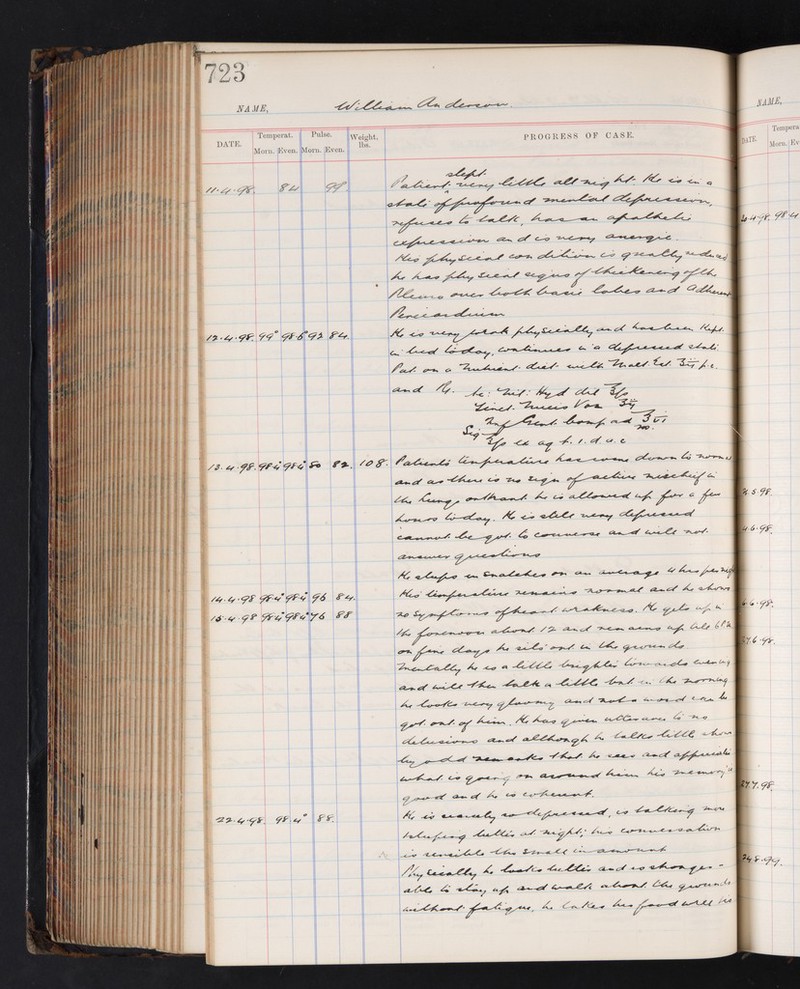 723
NAME, William Anderson.
DATE. Temperat. Pulse. Weight, lbs. PROGRESS OF CASE.
Morn. Even. Morn. Even.
slept
11.4.98. 84 99 Patient very little all night. He is in a
state of profound mental depression,
refuses to talk, has an apathetic
expression and is very anergic.
His physical condition is greatly reduced
he has physical signs of thickening of the
Pleura over both basic lobes and Adherent
Pericardium
12.4.98. 99° 98.6 92 84 He is very weak physically and has been kept
in bed today, continues in a depressed state.
Put on a nutrient diet with Malt Ext. ʒii p.c.
and Rx. Ac: Nit: Hyd dil ʒfs
Tinct. Nucis Vom ʒii
Inf Gent. Comp ad ʒvi
Sig ʒfs ex aq t.i.d. a.c
13.4.98. 98.4 98.4 80 82. 108. Patient's temperature has come down to normal
and as there is no sign of active mischief in
the lungs or heart he is allowed up for a few
hours today. He is still very depressed
cannot be got to converse and will not
answer questions
He sleeps in snatches on an average 4 hrs per night
14.4.98 98.4 98.4° 96 84. His temperature remains normal and he shows
15.4.98 98.4 98.4° 76 88 no symptoms of heart weakness. He gets up in
the forenoon about 12 and remains up till 6 P.M.
on fine days he sits out in the grounds.
Mentally he is a little brighter towards evening
and will then talk a little but in the morning
he looks very gloomy and not a word can be
got out of him. He has given utterance to no
delusions and although he talks little shows
by odd remarks that he sees and appreciates
what is going on around him his memory is
good and he is coherent.
22.4.98. 98.4° 88. He is scarcely so depressed, is talking more
sleeping better at night; his conversation
is sensible tho small in amount
Physically he looks better and is stronger -
able to stay up and walk about the grounds
without fatigue, he takes his food well
NAME,
DATE. Tempera
Morn. Ev
98.4
5.98.
6.98.
6.98.
27.6.98.
27.7.98.
24.8.99.